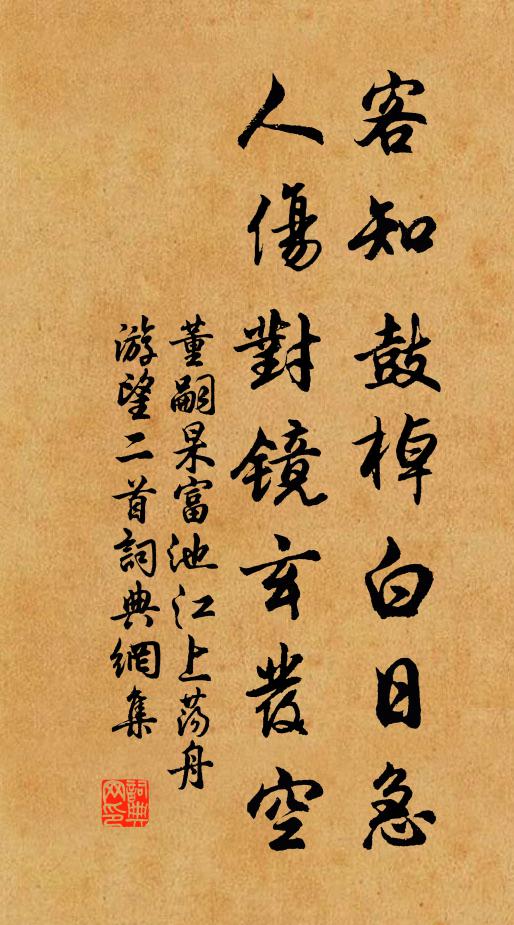 客知鼓棹白日急
人傷對鏡玄發空
董嗣杲富池江上蕩舟
游望二首詞典網集
詞典网印